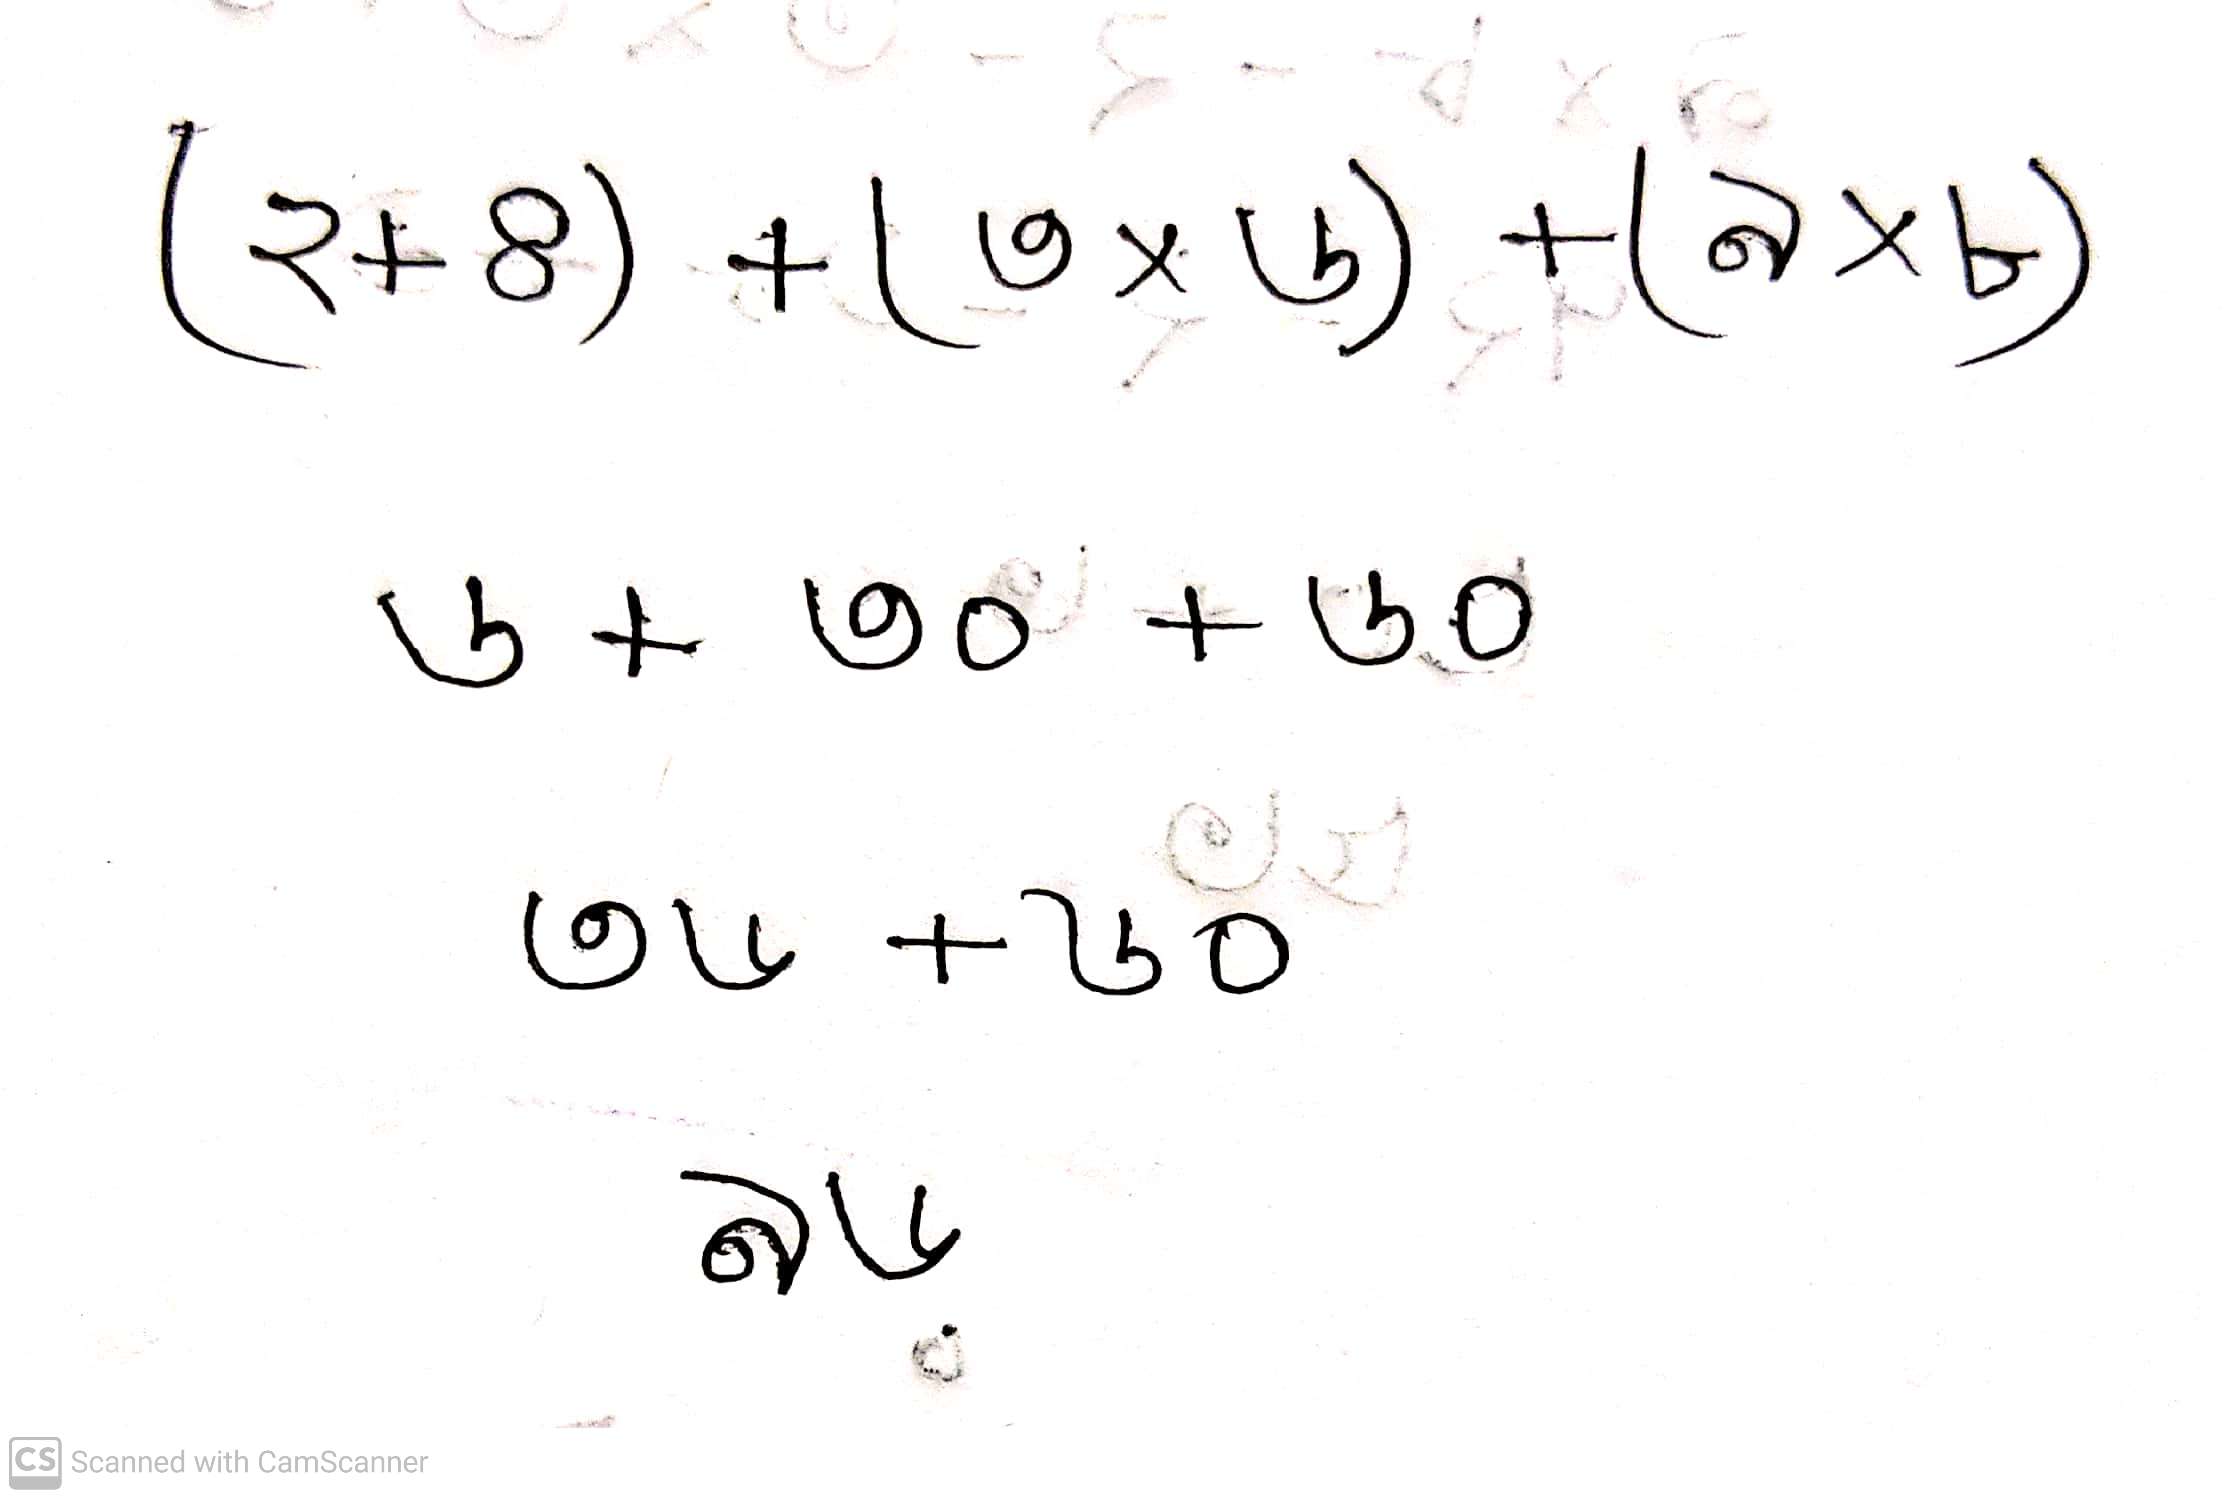 (২+৪) + (৩×৬) + (৯×৮)
৬ + ৩০ + ৬০
৩৬ + ৬০
৯৬
CS Scanned with CamScanner